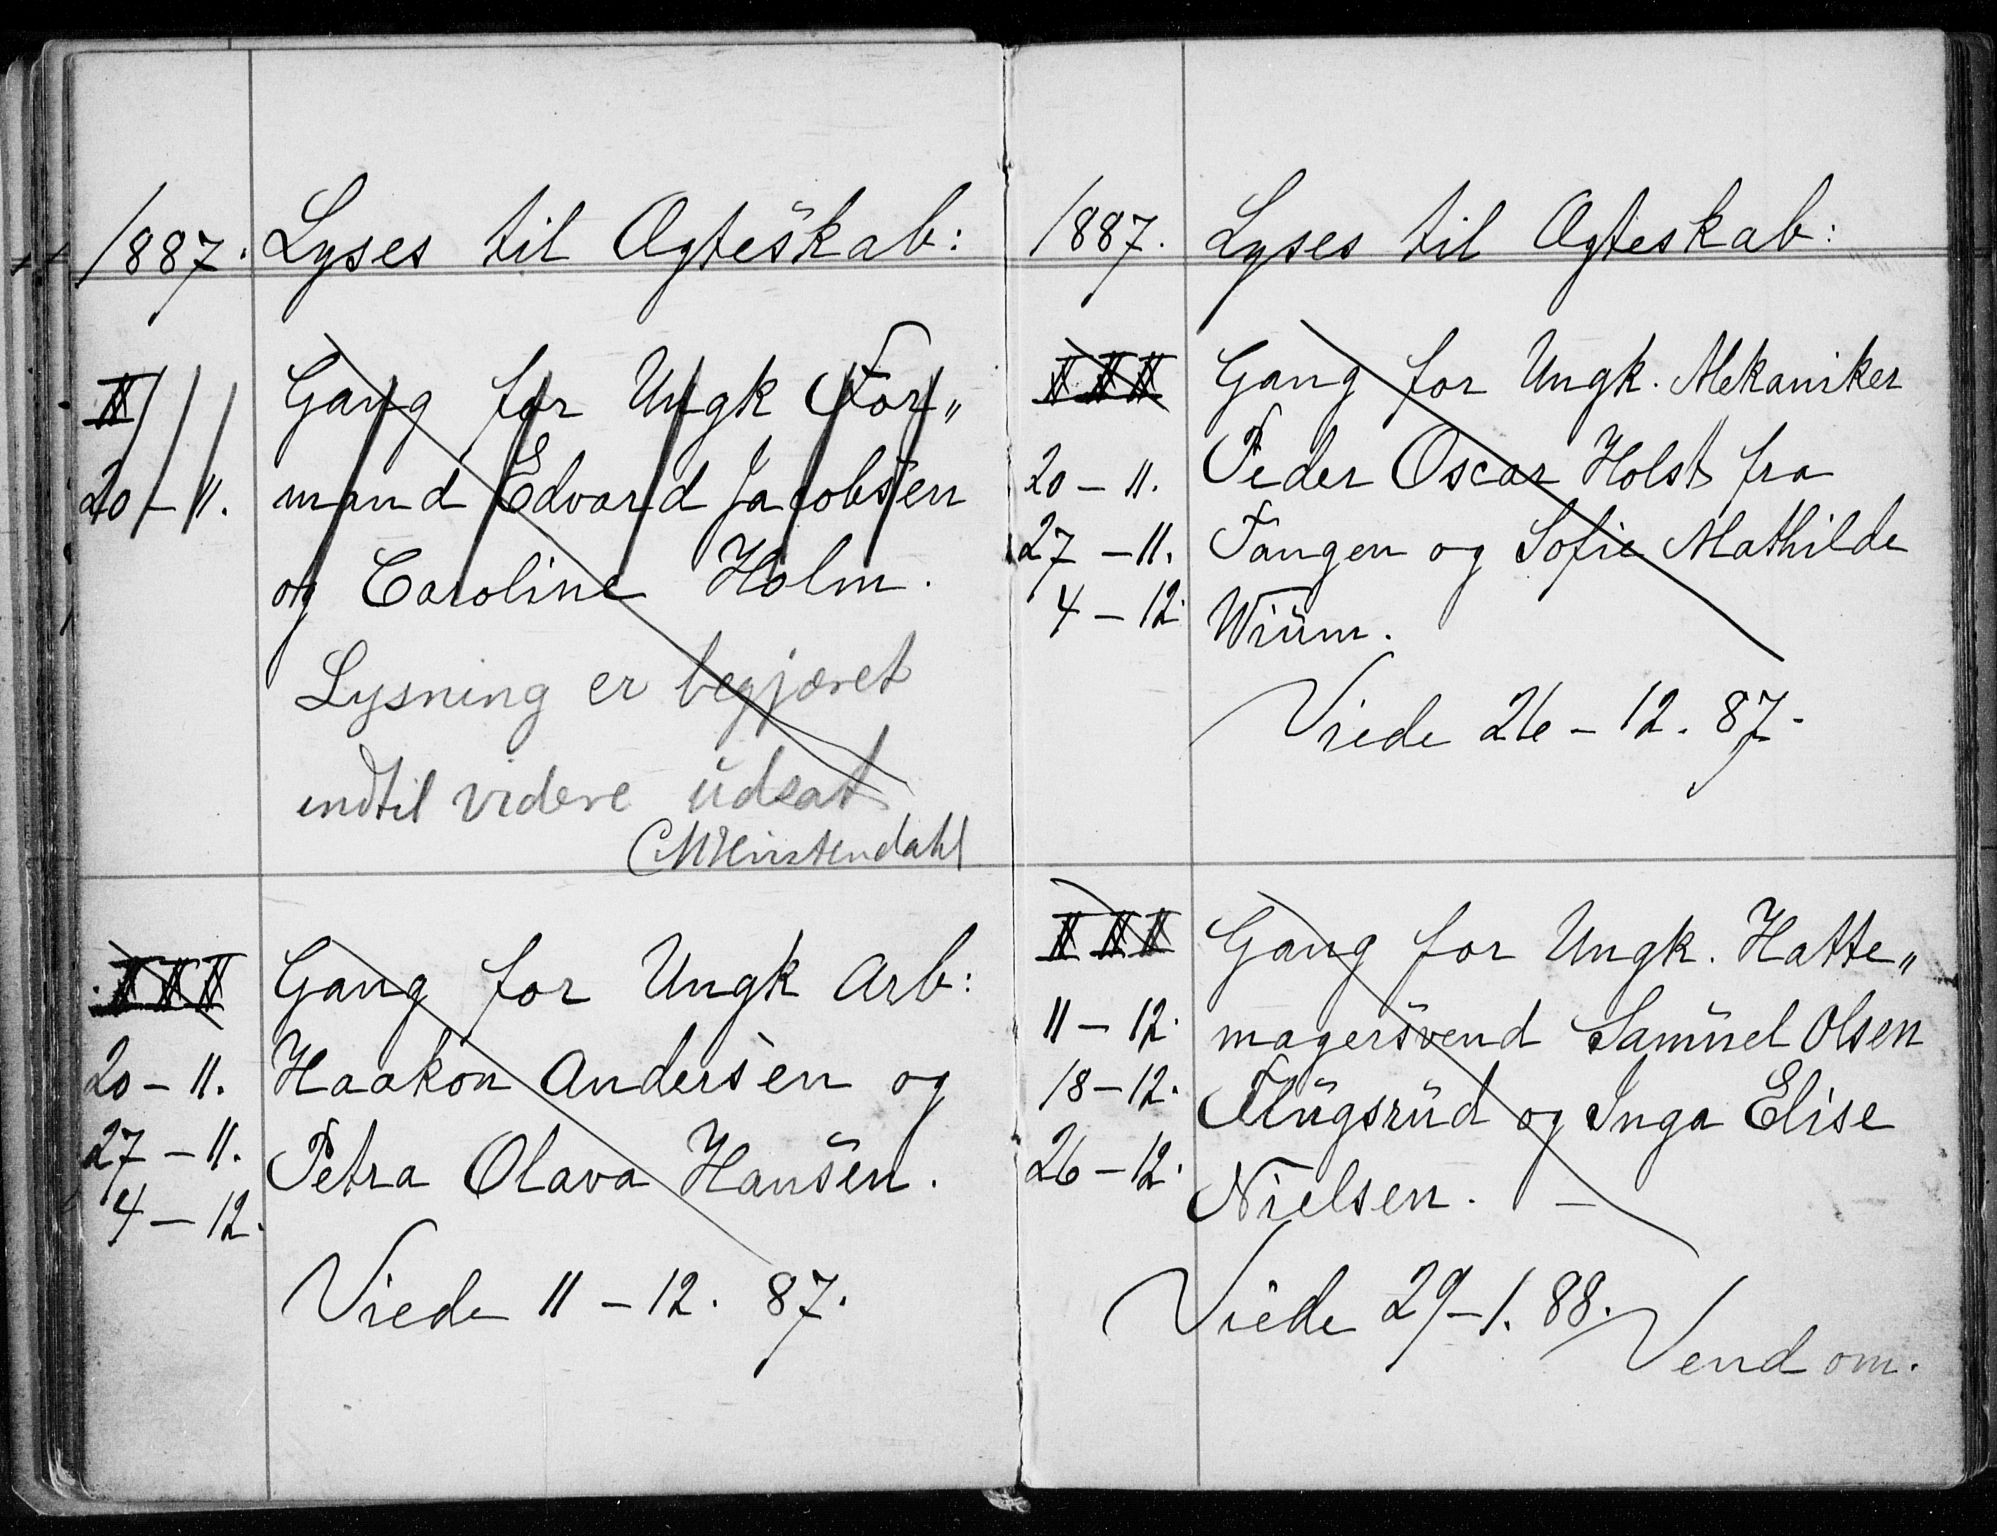 1887. Lyses til Ægteskab:
I Gang for Ungk For„
20 – 11. mand Edvard Jacobsen
og Caroline Holm.
Lysning er begjæret
indtil videre udsat
III Gang for Ungk Arb:
20 – 11. Haakon Andersen og
27 – 11. Petra Olava Hansen.
4 – 12.
Viede 11 – 12. 87.
1887. Lyses til Ægteskab:
III Gang for Ungk. Mekaniker
20 – 11. Peder Oscar Holst fra
27 – 11. Fangen og Sofie Mathilde
4 – 12. Wium.
Viede 26 – 12. 87.
III Gang for Ungk. Hatte„
11 – 12. magersvend Samuel Olsen
18 – 12. Flugsrud og Inga Elise
26 – 12. Nielsen. –
Viede 29 – 1. 88.
Vend om.